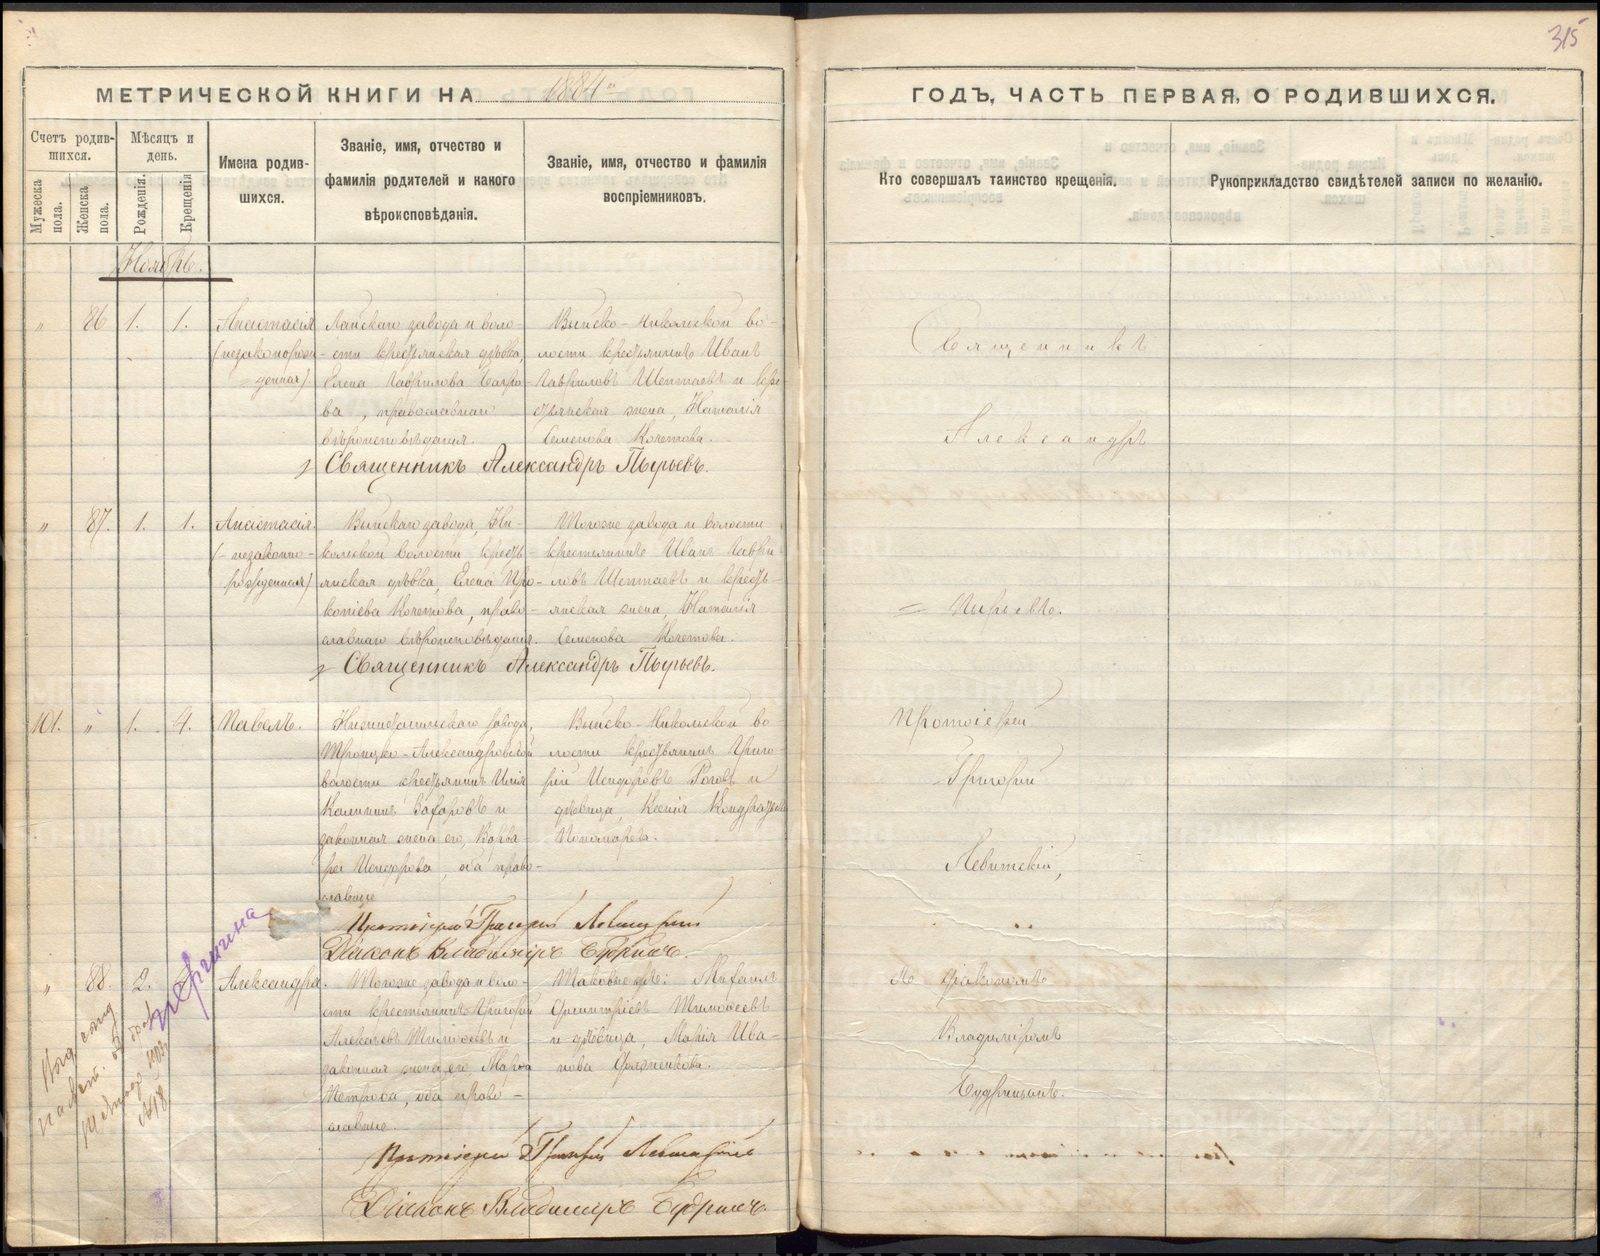 315
МЕТРИЧЕСКОЙ КНИГИ НА 1884
ГОДЪ, ЧАСТЬ ПЕРВАЯ, О РОДИВШИХСЯ.
Счетъ родив-
шихся.
Мужеска
пола.
Женска
пола.
Мѣсяцъ и
день.
Рожденія.
Крещенія
Имена родив-
шихся.
Званіе, имя, отчество и
фамилія родителей и какого
вѣроисповѣданія.
Званіе, имя, отчество и фамилія
воспріемниковъ.
Кто совершалъ таинство крещенія.
Рукоприкладство свидѣтелей записи по желанію.
Ноябрь.
" 86 1. 1.
Анастасія
(незаконорож-
денная)
Лайскаго завода и воло-
сти крестьянская дѣвка,
Елена Гаврилова
ва, православнаго
вѣроисповѣданія.
Выйско-Никольской во-
лости крестьянинъ Иванъ
Гавриловъ Шептаевъ и кре-
стьянская жена, Наталія
Семенова Кочетова.
Священникъ Александръ Пырьевъ.
Священникъ
Александръ
" 87. 1. 1.
Анастасія.
(незаконно-
рожденная)
Выйскаго завода, Ни-
кольской волости, кресть-
янская дѣвка, Елена Про-
копіева Кочетова, право-
славнаго вѣроисповѣданія.
Тогоже завода и волости
крестьянинъ Иванъ Гаври-
ловъ Шептаевъ и кресть-
янская жена, Наталія
Семенова Кочетова.
Священникъ Александръ Пырьевъ.
Пырьевъ.
101. " 1. 4.
Павелъ.
Нижнетагильскаго завода,
Троицко-Александровской
волости крестьянинъ Илія
Калининъ Захаровъ и
законная жена его, Варва-
ра Исидорова, оба право-
славные
Выйско-Никольской во-
лости крестьянинъ Григо-
рій Исидоровъ Роговъ и
дѣвица, Ксенія Кондратьева
Пономарева.
Протоіерей Григорій Левитскій
Діаконъ Владиміръ Будринъ.
Протоіерей
Григорій
Левитскій,
" 88. 2.
Александра.
Тогоже завода и воло-
сти крестьянинъ Григорій
Алексѣевъ Тимофеевъ и
законная жена его Марѳа
Петрова, оба право-
славные.
Таковые же: Михаилъ
Димитріевъ Тимофеевъ
и дѣвица, Марія Ива-
нова
Протоіерей Григорій Левитскій
Діаконъ Владиміръ Будринъ
съ діакономъ
Владиміромъ
Будринымъ.